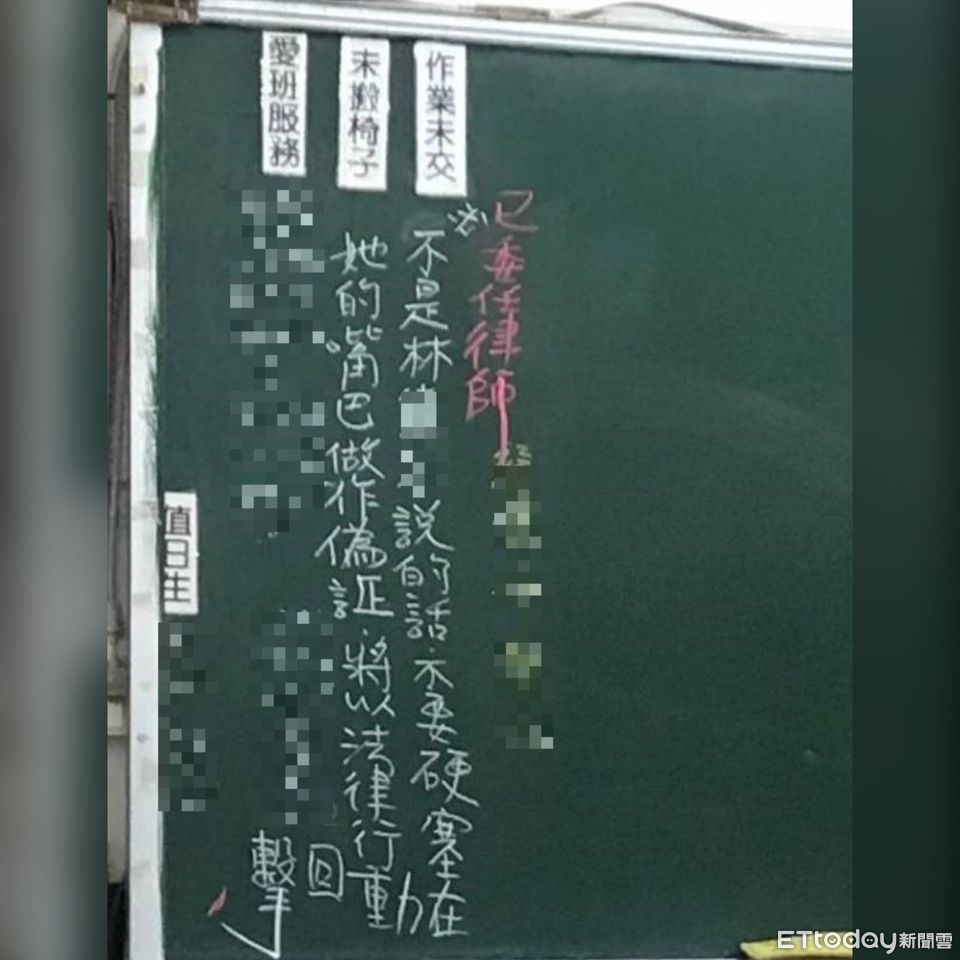 作業未交
未搬椅子
愛班服務
值日生
已委任律師
不是林
說的話.不要硬塞在
她的嘴巴做作偽証.將以法律行動
回擊
ETtoday新聞雲